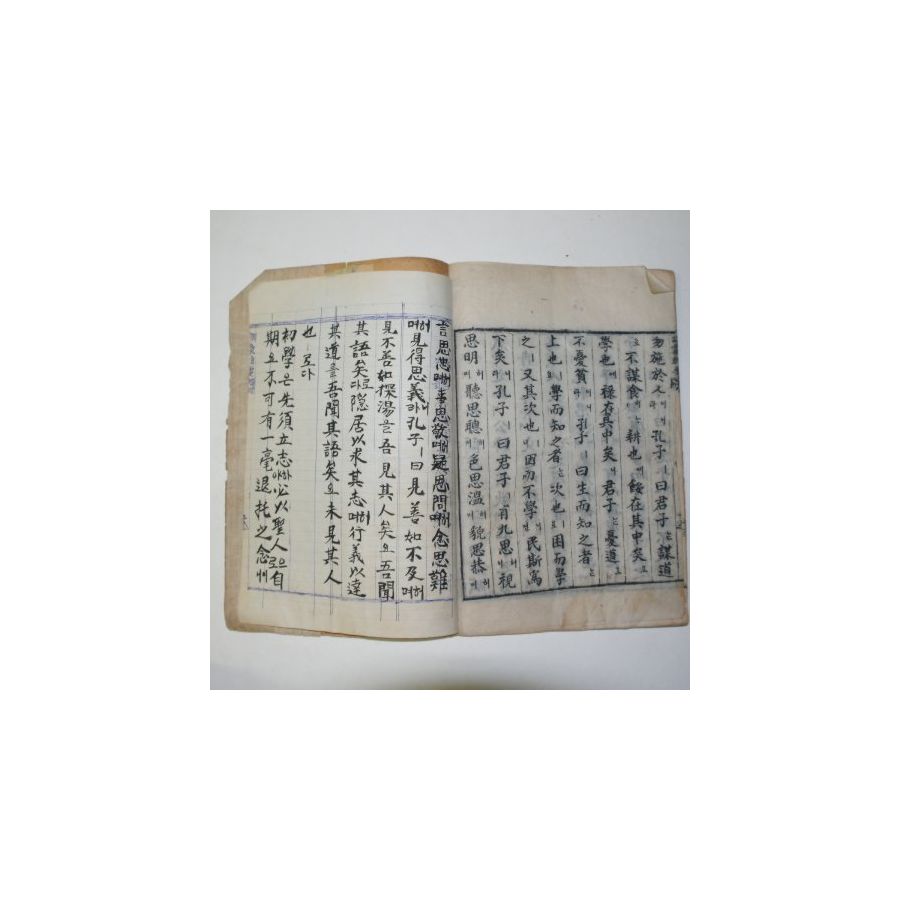 勿施於人라孔子ㅣ曰君子는謀道
不謀食는耕也에餒在其中矣오
學也에祿在其中矣니君子는憂道
不憂貧라孔子ㅣ曰生而知之者는
上也ㅣ오學而知之者는次也ㅣ오困而學
之ㅣ又其次也ㅣ니困而不學면民斯爲
下矣라孔子ㅣ曰君子有九思니視
思明며聽思聰며色思溫며貌思恭며
言思忠며事思敬며疑思問며忿思難
며見得思義니라孔子ㅣ曰見善如不及며
見不善如探湯을吾見其人矣오吾聞
其語矣로다隱居以求其志며行義以達
其道을吾聞其語矣오未見其人
也ㅣ로다
初學은先須立志하야必以聖人으로自
期오不可有一毫退托之念이니